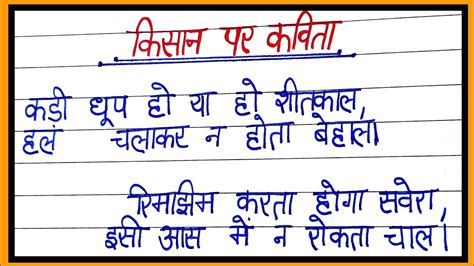 किसान पर कविता
कड़ी धूप हो या हो शीतकाल,
हल चलाकर न होता बेहाल।
रिमझिम करता होगा सवेरा,
इसी आस में न रोकता चाल।